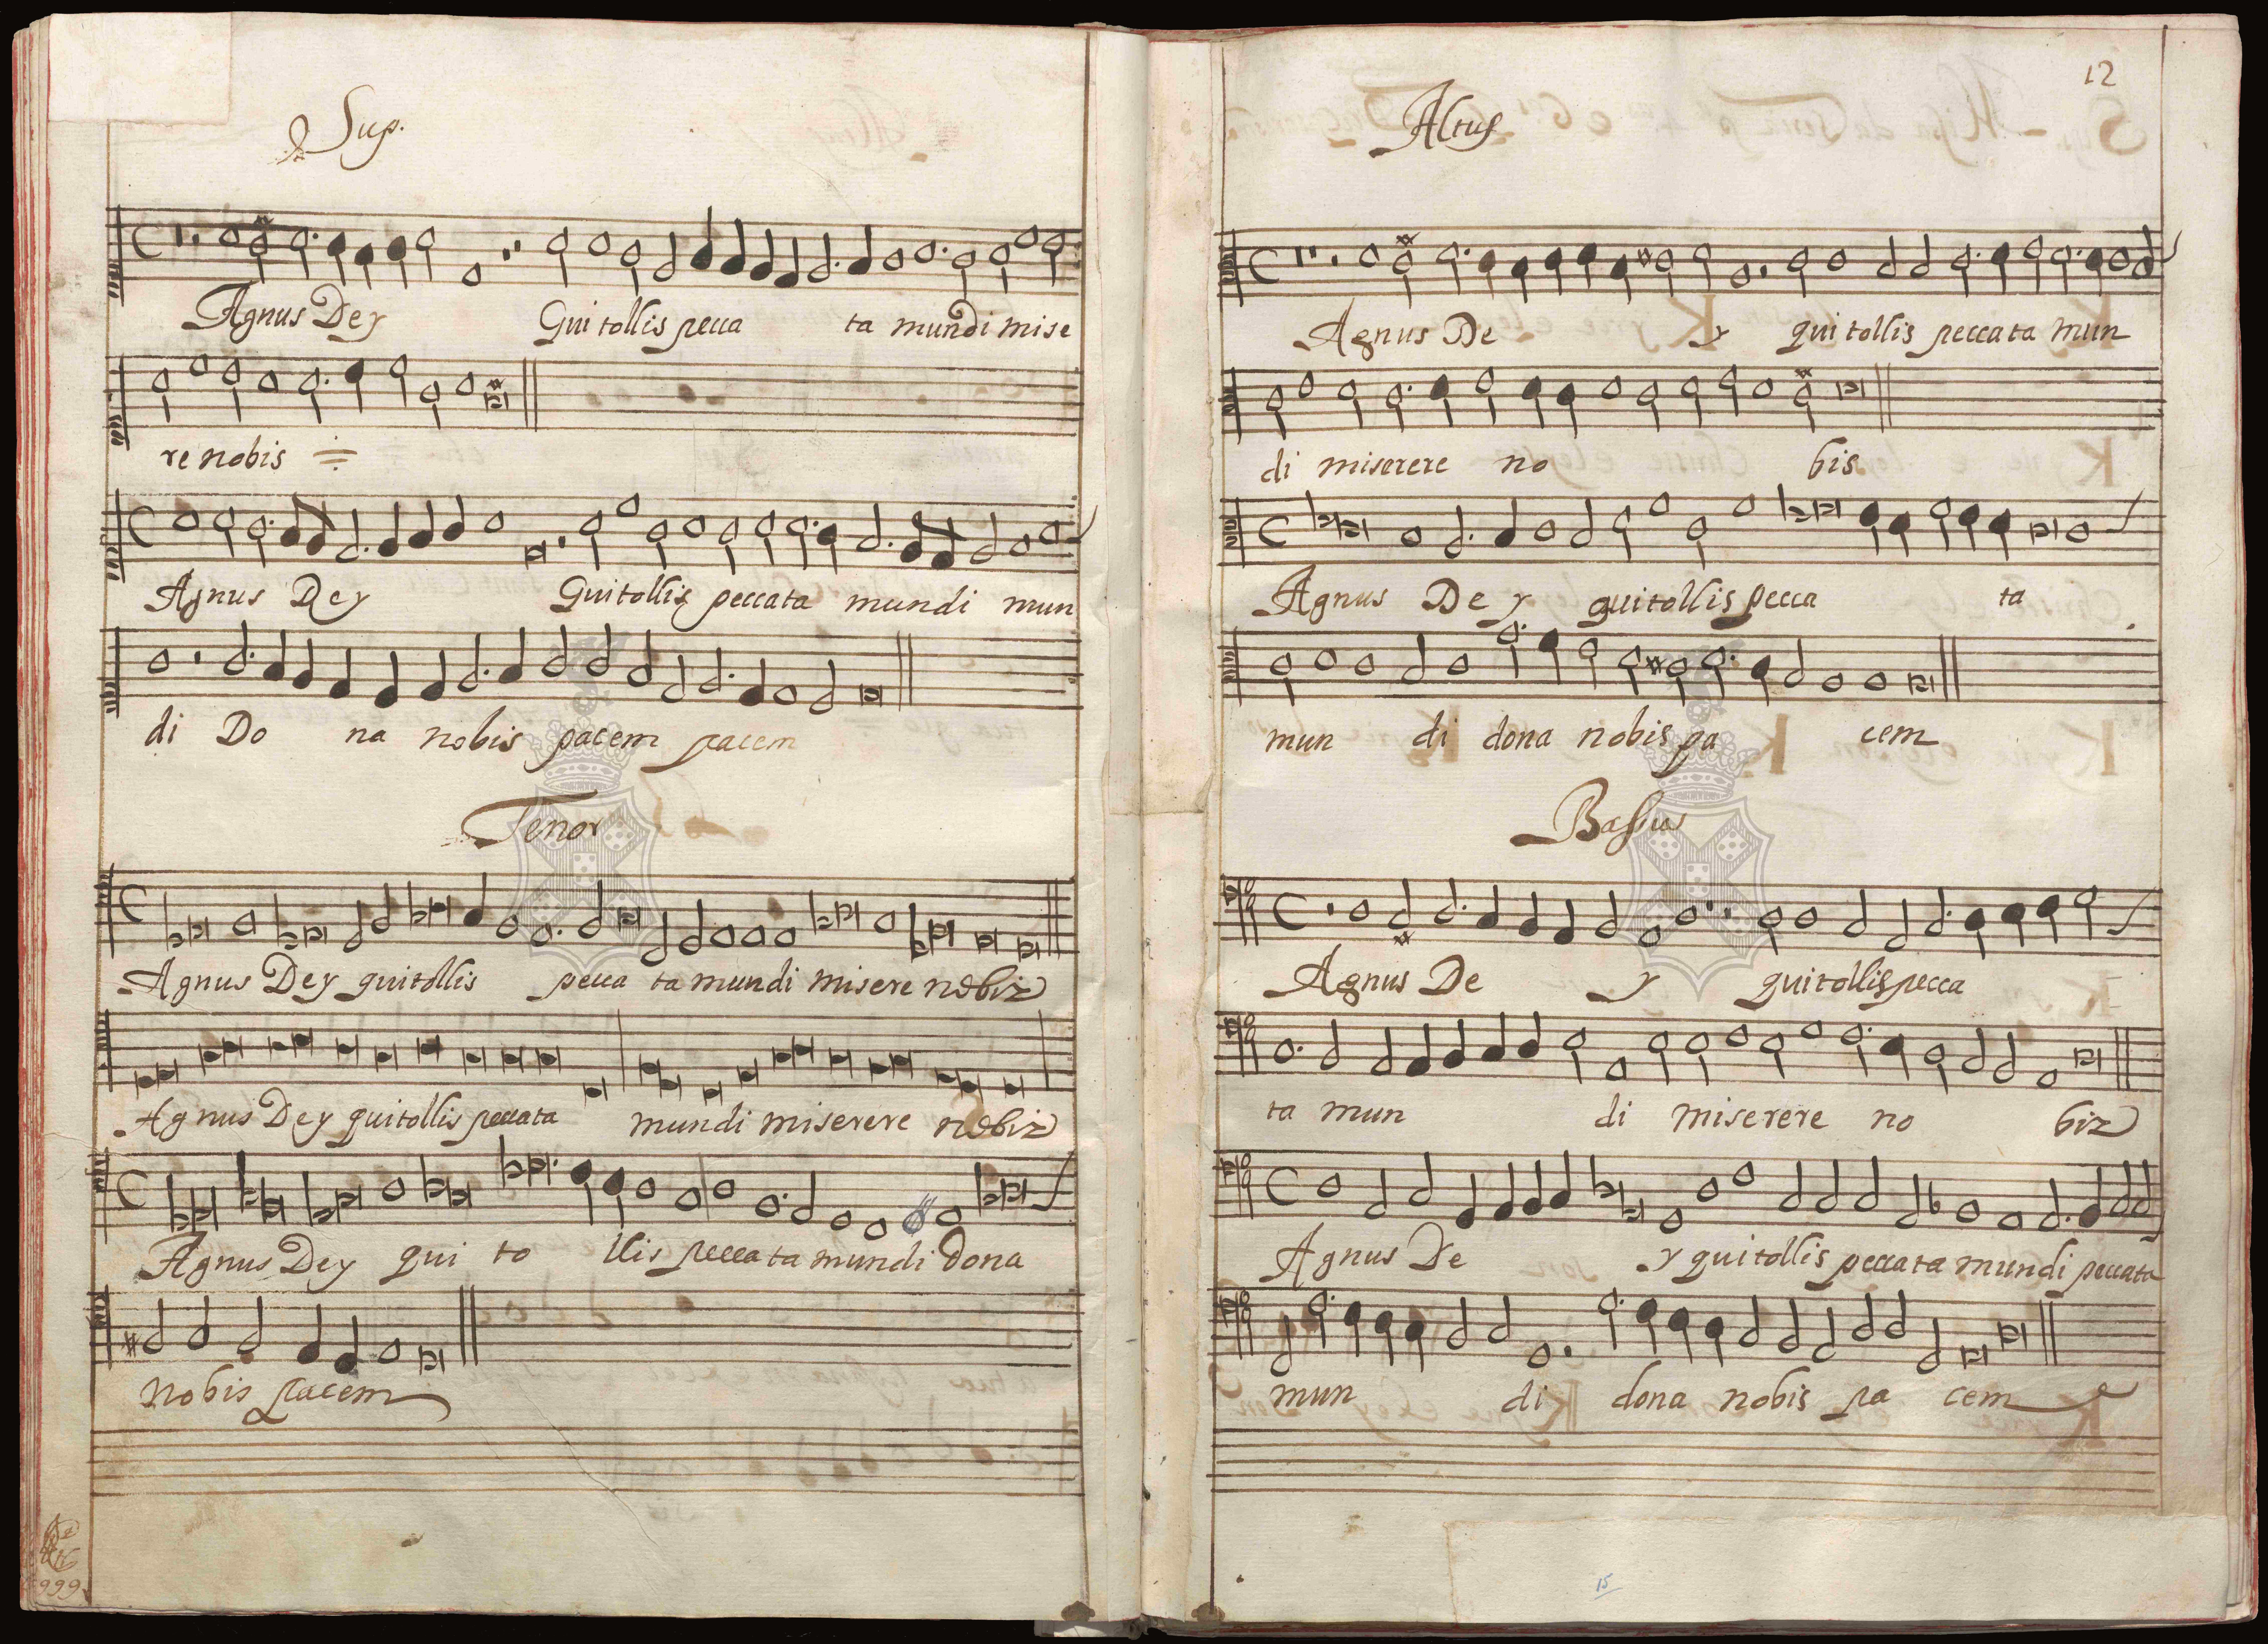 Sup.
Agnus Dey Qui tollis pecca ta mundi mise
re nobis
Agnus Dey Qui tollis peccata mundi mun
di Do na nobis pacem pacem
Tenor
Agnus Dey qui tollis pecca ta mundi misere nobiz
Agnus Dey qui tollis peccata mundi miserere nobiz
Agnus Dey qui to llis pecca ta mundi dona
nobis pacem
999
12
Altus
Agnus De y qui tollis peccata mun
di miserere no bis
Agnus De y qui tollis pecca ta
mun di dona nobis pa cem
Bassus
Agnus De y qui tollis pecca
ta mun di miserere no biz
Agnus De y qui tollis peccata mundi peccata
mun di dona nobis pa cem
15